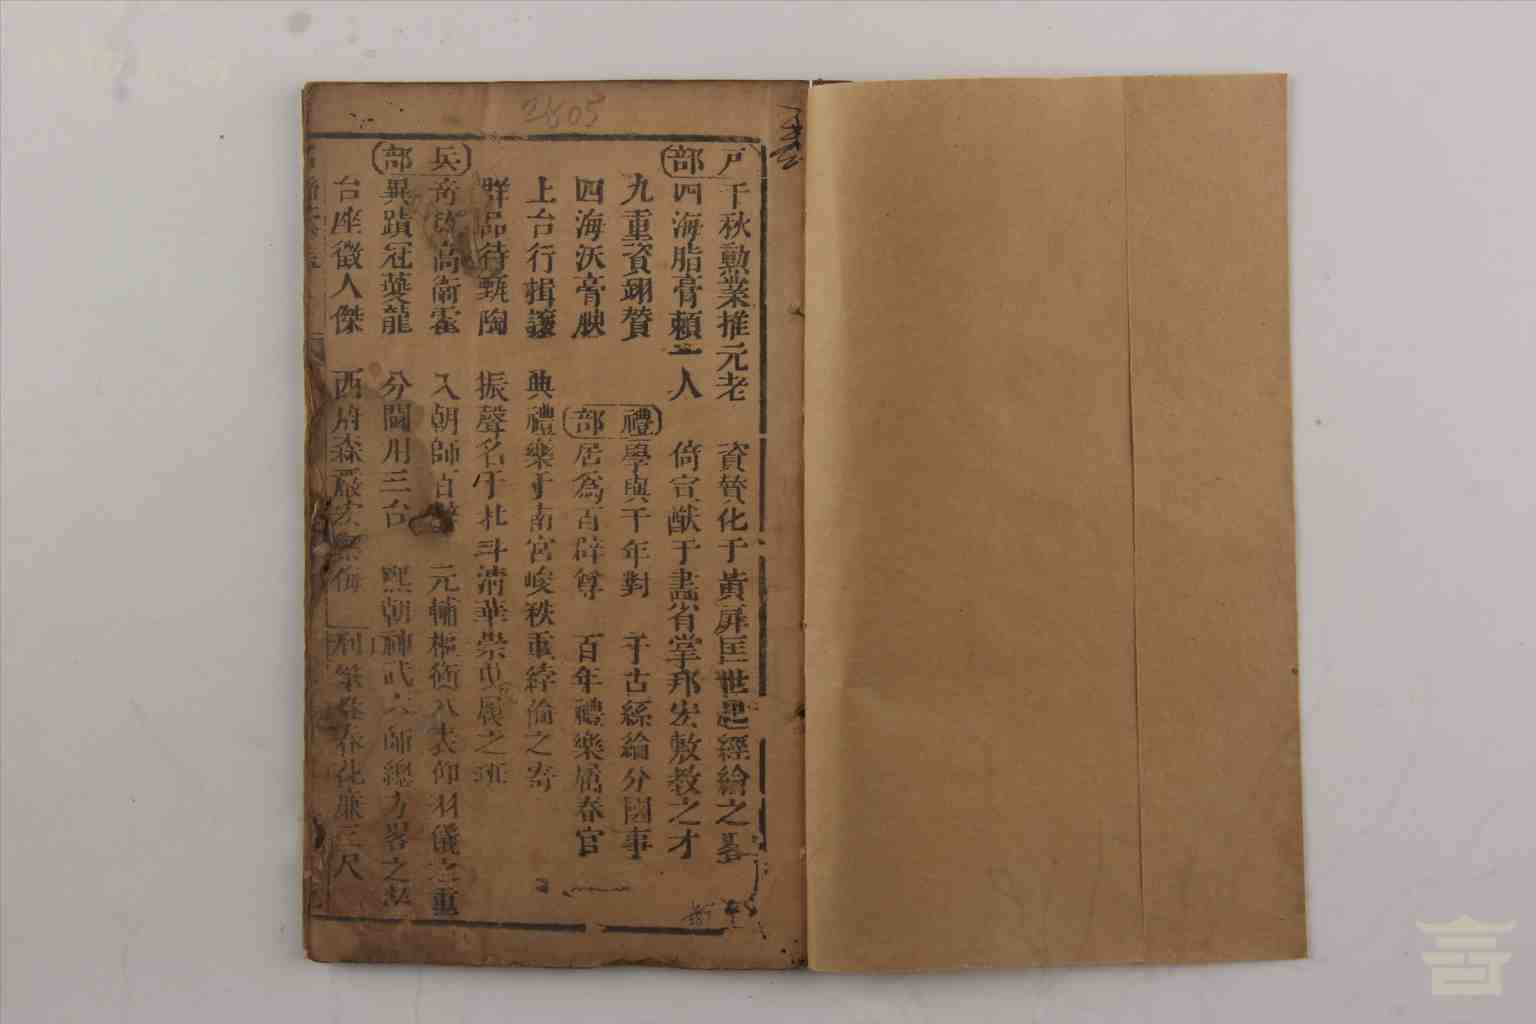 2805
戶部 千秋勳業推元老 資贊化于黃扉匡世起經綸之畧
四海脂膏賴一人 倚宣猷于畫省掌邦宏敷教之才
九重資翊贊 禮部 學與千年對 千古絲綸分國事
四海沃膏腴 居爲百辟尊 百年禮樂屬春官
上台行揖讓 典禮樂于南宮峻秩重絲綸之寄
群品待甄陶 振聲名于北斗清華崇 展之班
兵部 高衛霍 入朝師百辟 元輔樞衡八表仰羽儀之重
異蹟冠夔龍 分閫用三台 熙朝神武六師總方畧之
台座徵人傑 西府森嚴 春化 三尺